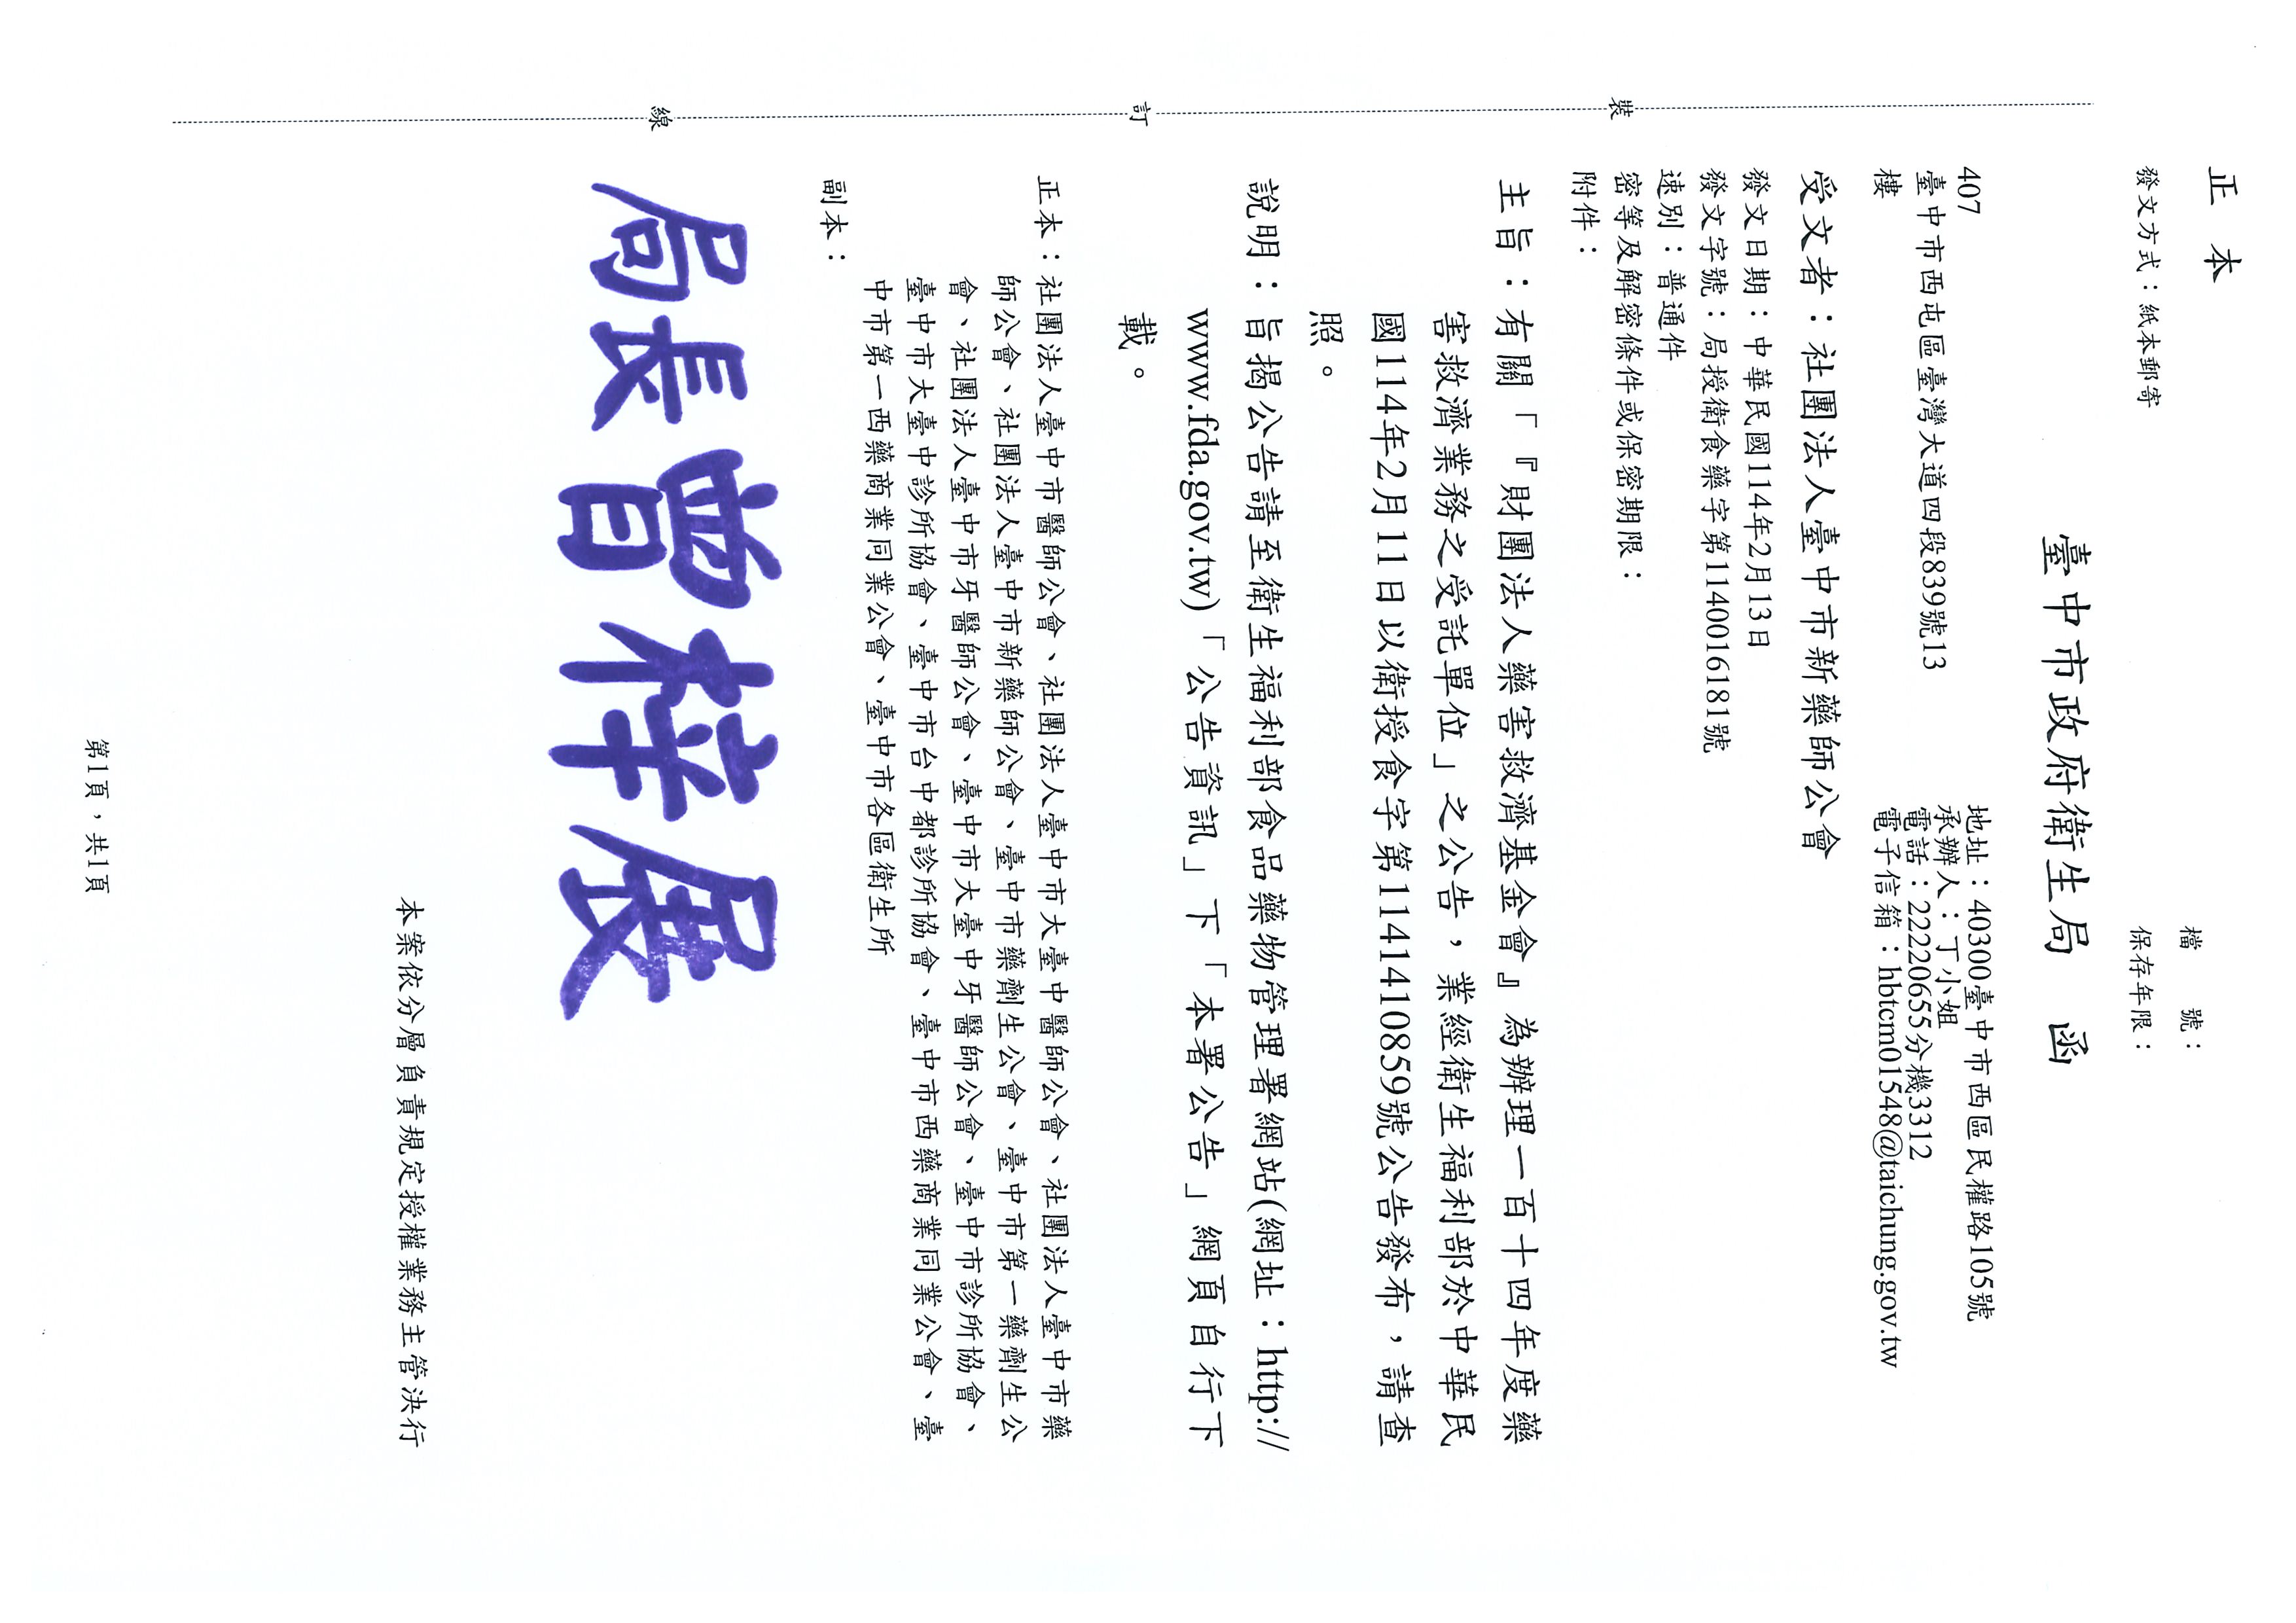 正本
檔　　號：
保存年限：
發文方式：紙本郵寄
臺中市政府衛生局　函
地址：40300臺中市西區民權路105號
承辦人：丁小姐
電話：22220655分機3312
電子信箱：hbtcm01548@taichung.gov.tw
407
臺中市西屯區臺灣大道四段839號13
樓
受文者：社團法人臺中市新藥師公會
發文日期：中華民國114年2月13日
發文字號：局授衛食藥字第1140016181號
速別：普通件
密等及解密條件或保密期限：
附件：
主旨：有關「『財團法人藥害救濟基金會』為辦理一百十四年度藥
害救濟業務之受託單位」之公告，業經衛生福利部於中華民
國114年2月11日以衛授食字第1141410859號公告發布，請查
照。
說明：旨揭公告請至衛生福利部食品藥物管理署網站(網址：http://
www.fda.gov.tw)「公告資訊」下「本署公告」網頁自行下
載。
正本：社團法人臺中市醫師公會、社團法人臺中市大臺中醫師公會、社團法人臺中市藥
師公會、社團法人臺中市新藥師公會、臺中市藥劑生公會、臺中市第一藥劑生公
會、社團法人臺中市牙醫師公會、臺中市大臺中牙醫師公會、臺中市診所協會、
臺中市大臺中診所協會、臺中市台中都診所協會、臺中市西藥商業同業公會、臺
中市第一西藥商業同業公會、臺中市各區衛生所
副本：
局長曾梓展
本案依分層負責規定授權業務主管決行
第1頁，共1頁
裝
訂
線